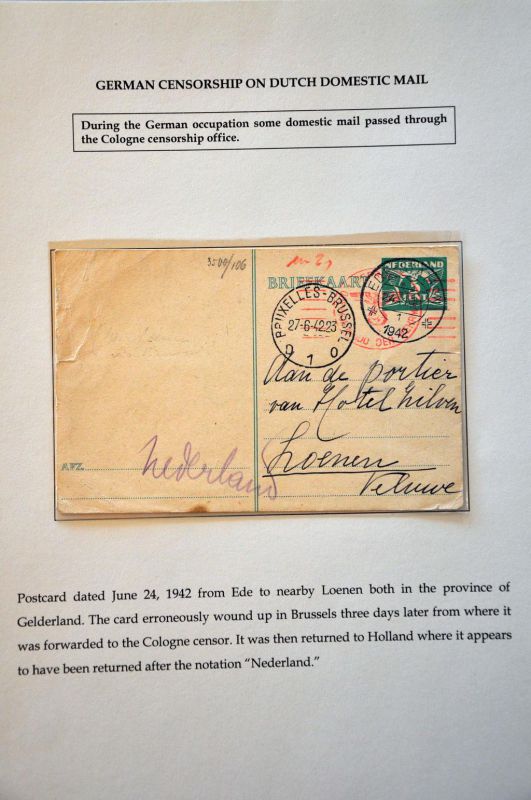 GERMAN CENSORSHIP ON DUTCH DOMESTIC MAIL
During the German occupation some domestic mail passed through
the Cologne censorship office.
3500/106
BRIEFKAART
NEDERLAND
CENT
1
1942
BRUXELLES-BRUSSEL
27-6-42 23
D 1 0
Aan de portier
van Hotel Zilven
Loenen
Veluwe
AFZ.
Nederland
Postcard dated June 24, 1942 from Ede to nearby Loenen both in the province of
Gelderland. The card erroneously wound up in Brussels three days later from where it
was forwarded to the Cologne censor. It was then returned to Holland where it appears
to have been returned after the notation “Nederland.”